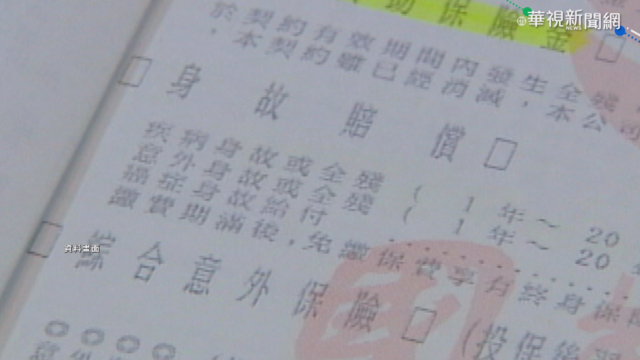 華視新聞網
NEWS
助保險金
於契約有效期間內發生全殘
,本契約雖已經消滅,本公司
身故賠償
疾病身故或全殘 ( 1年~20年
意外身故或全殘 ( 1年~20
癌症身故給付
繳費期滿後,免繳保費享有終身保障
資料畫面
綜合意外保險
(投保後
意外